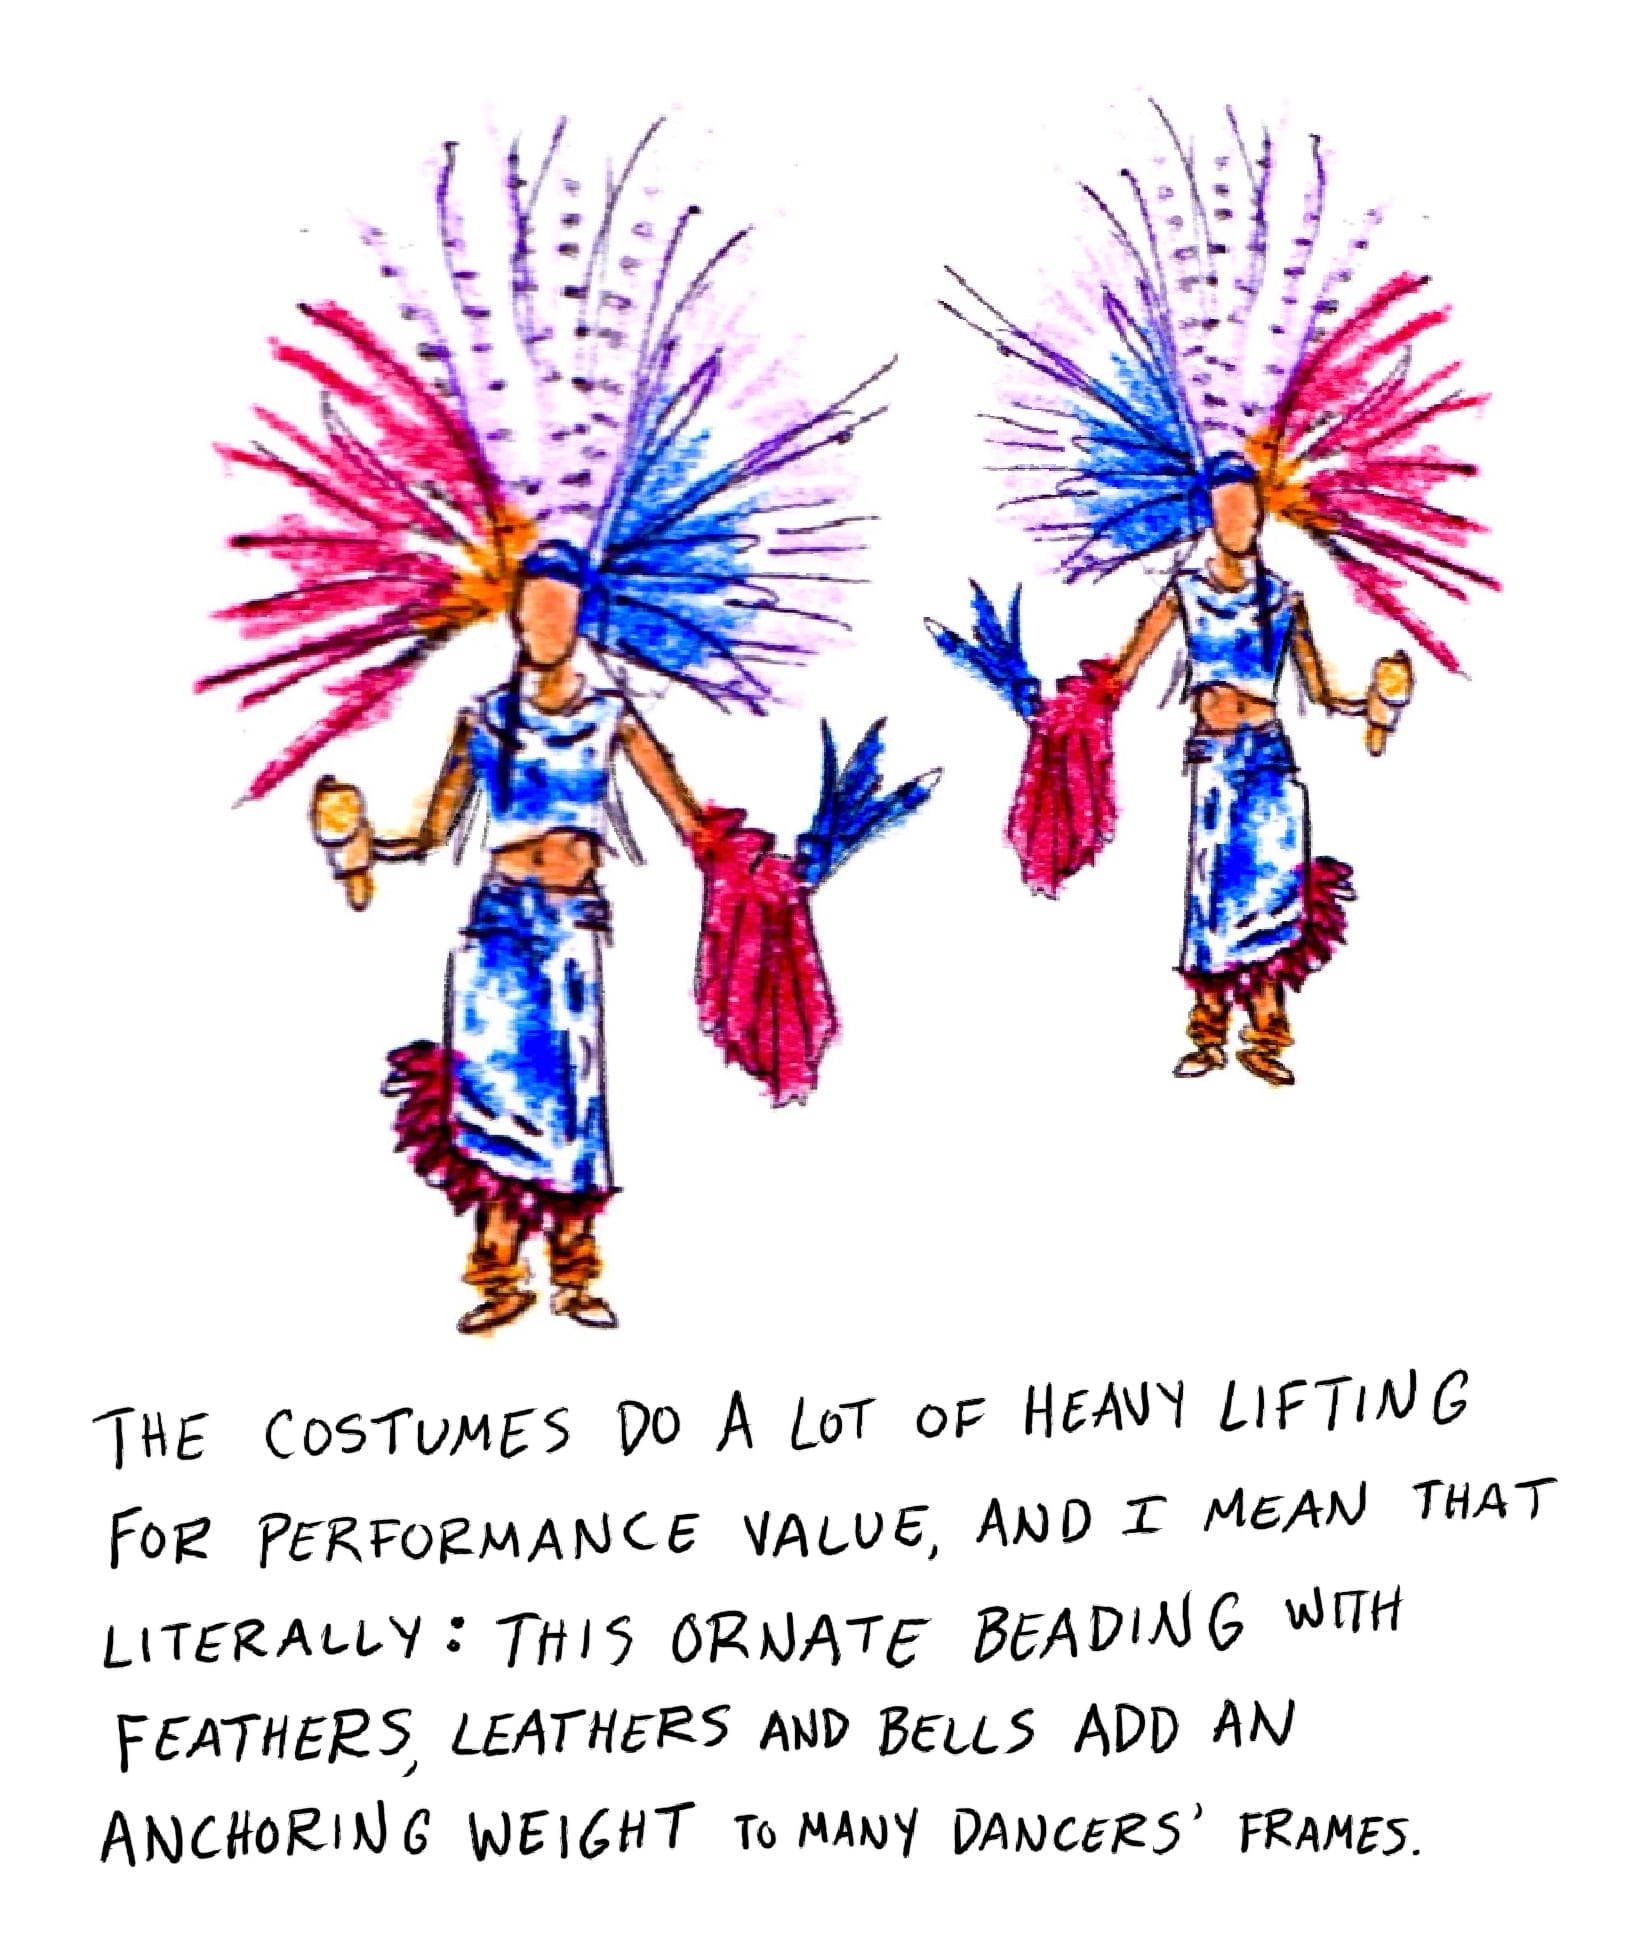 THE COSTUMES DO A LOT OF HEAVY LIFTING
FOR PERFORMANCE VALUE, AND I MEAN THAT
LITERALLY: THIS ORNATE BEADING WITH
FEATHERS, LEATHERS AND BELLS ADD AN
ANCHORING WEIGHT TO MANY DANCERS' FRAMES.